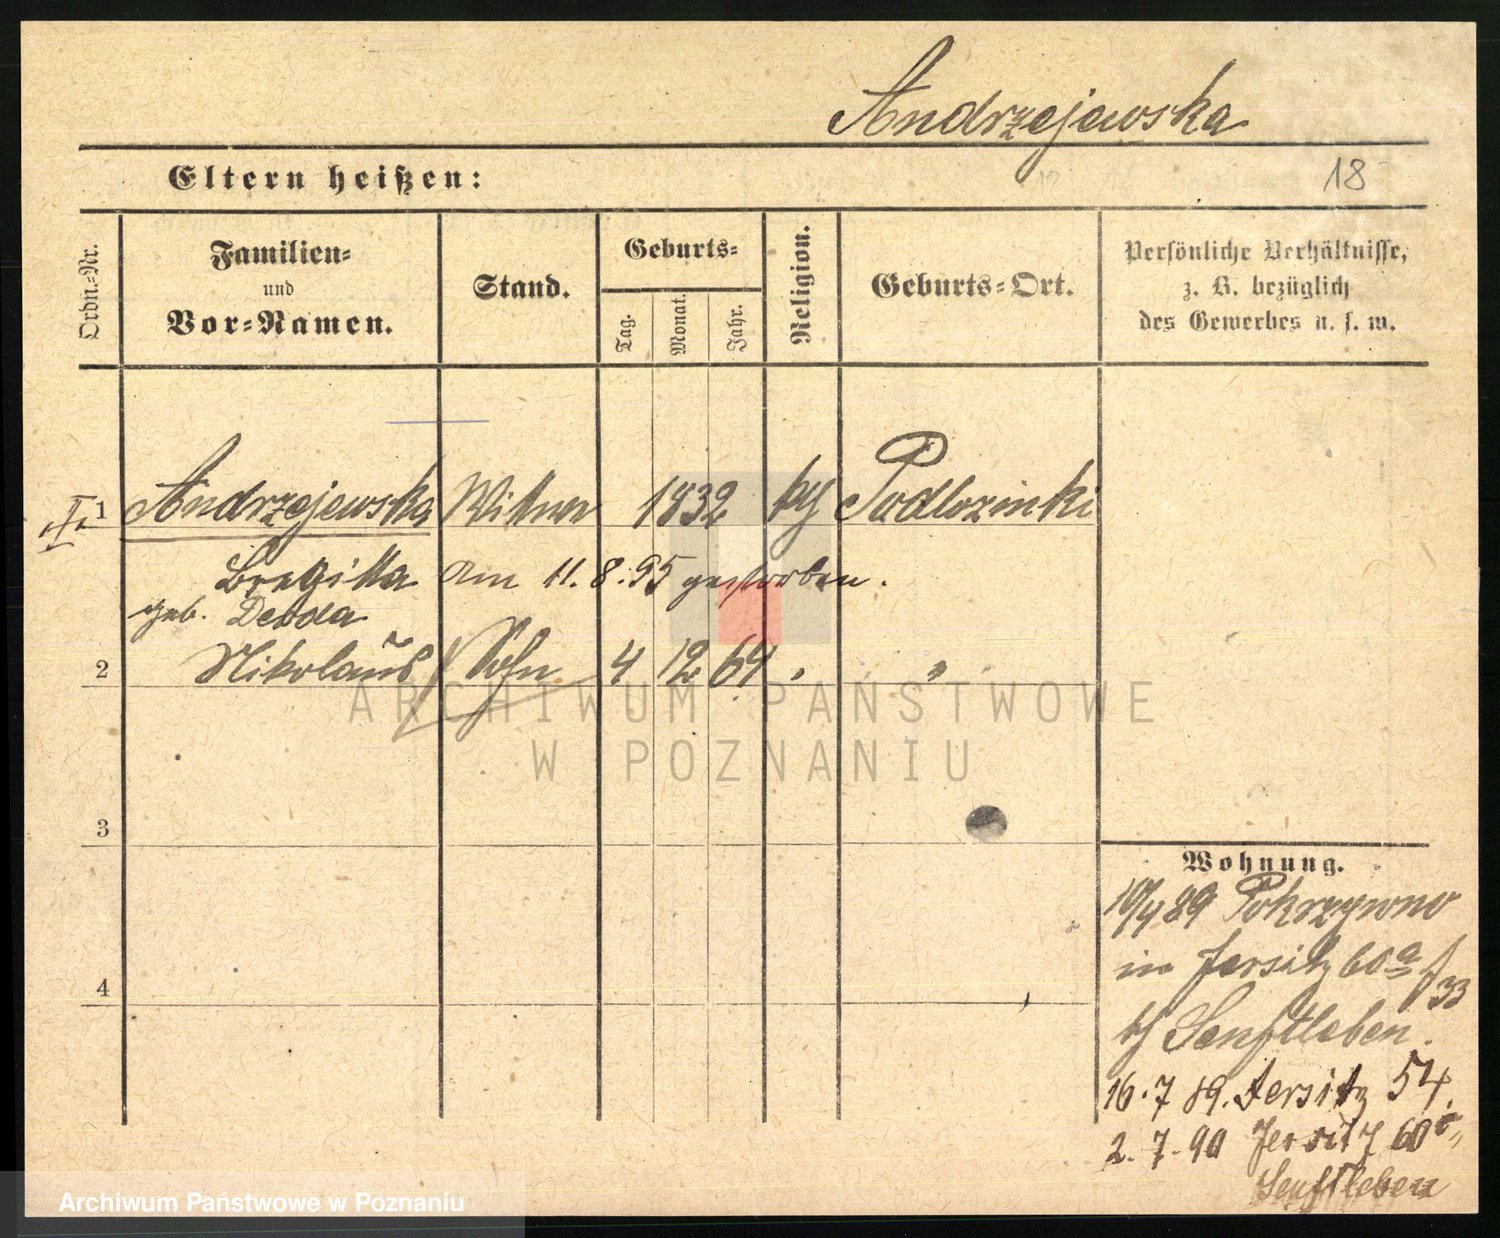 Andrzejewska
Eltern heißen:
18
Ordn.-Nr.
Familien-
und
Vor-Namen.
Stand.
Geburts-
Tag.
Monat.
Jahr.
Religion.
Geburts-Ort.
Persönliche Verhältnisse,
z. B. bezüglich
des Gewerbes u. s. w.
1 Andrzejewska Wittwe 1832 Podlozinki
Bregitta am 11.8.95 gestorben.
geb. Deoda
2 Nikolaus Sohn 4 12 64 " "
3
4
Wohnung.
10/4 89 Pokrzywno
in Jersitz 60a
33
b/ Senftleben.
16.7 89. Jersitz 54.
2.7.90 Jersitz 60
Senftleben
ARCHIWUM PAŃSTWOWE
W POZNANIU
Archiwum Państwowe w Poznaniu